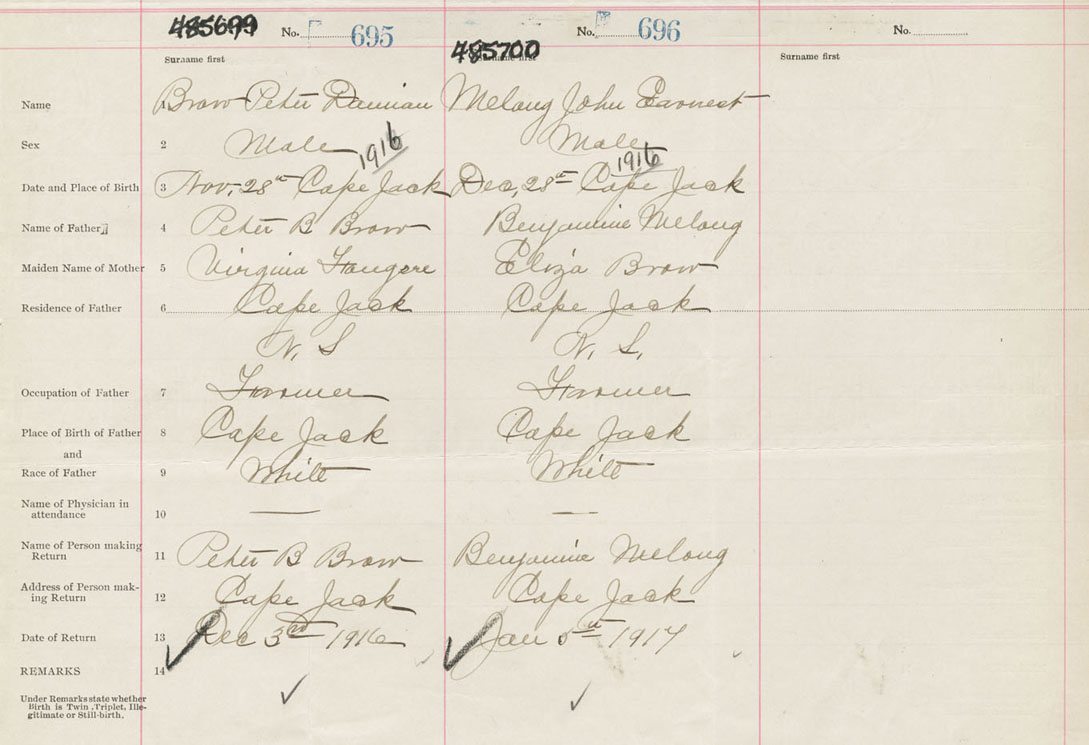 485699 No. 695 485700 No. 696 No.
Surname first Surname first Surname first
Name 1 Brow Peter Damian Melong John Earnest
Sex 2 Male Male
1916 1916
Date and Place of Birth 3 Nov, 28th Cape Jack Dec, 28th Cape Jack
Name of Father 4 Peter B Brow Benjamine Melong
Maiden Name of Mother 5 Virginia Fougere Eliza Brow
Residence of Father 6 Cape Jack Cape Jack
N. S N. S.
Occupation of Father 7 Farmer Farmer
Place of Birth of Father 8 Cape Jack Cape Jack
and
Race of Father 9 White White
Name of Physician in
attendance 10 — —
Name of Person making
Return 11 Peter B Brow Benjamine Melong
Address of Person mak-
ing Return 12 Cape Jack Cape Jack
Date of Return 13 Dec 3rd 1916 Jan 5th 1917
REMARKS 14
Under Remarks state whether
Birth is Twin, Triplet, Ille-
gitimate or Still-birth.